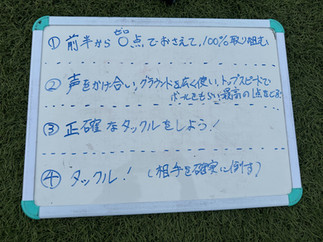 ゼロ
① 前半から〇点でおさえて,100%取り組む
② 声をかけ合い,グラウンドを広く使い,トップスピードで
ボールをもらい最高の
③ 正確なタックルをしよう!
④ タックル!(相手を確実に倒す)